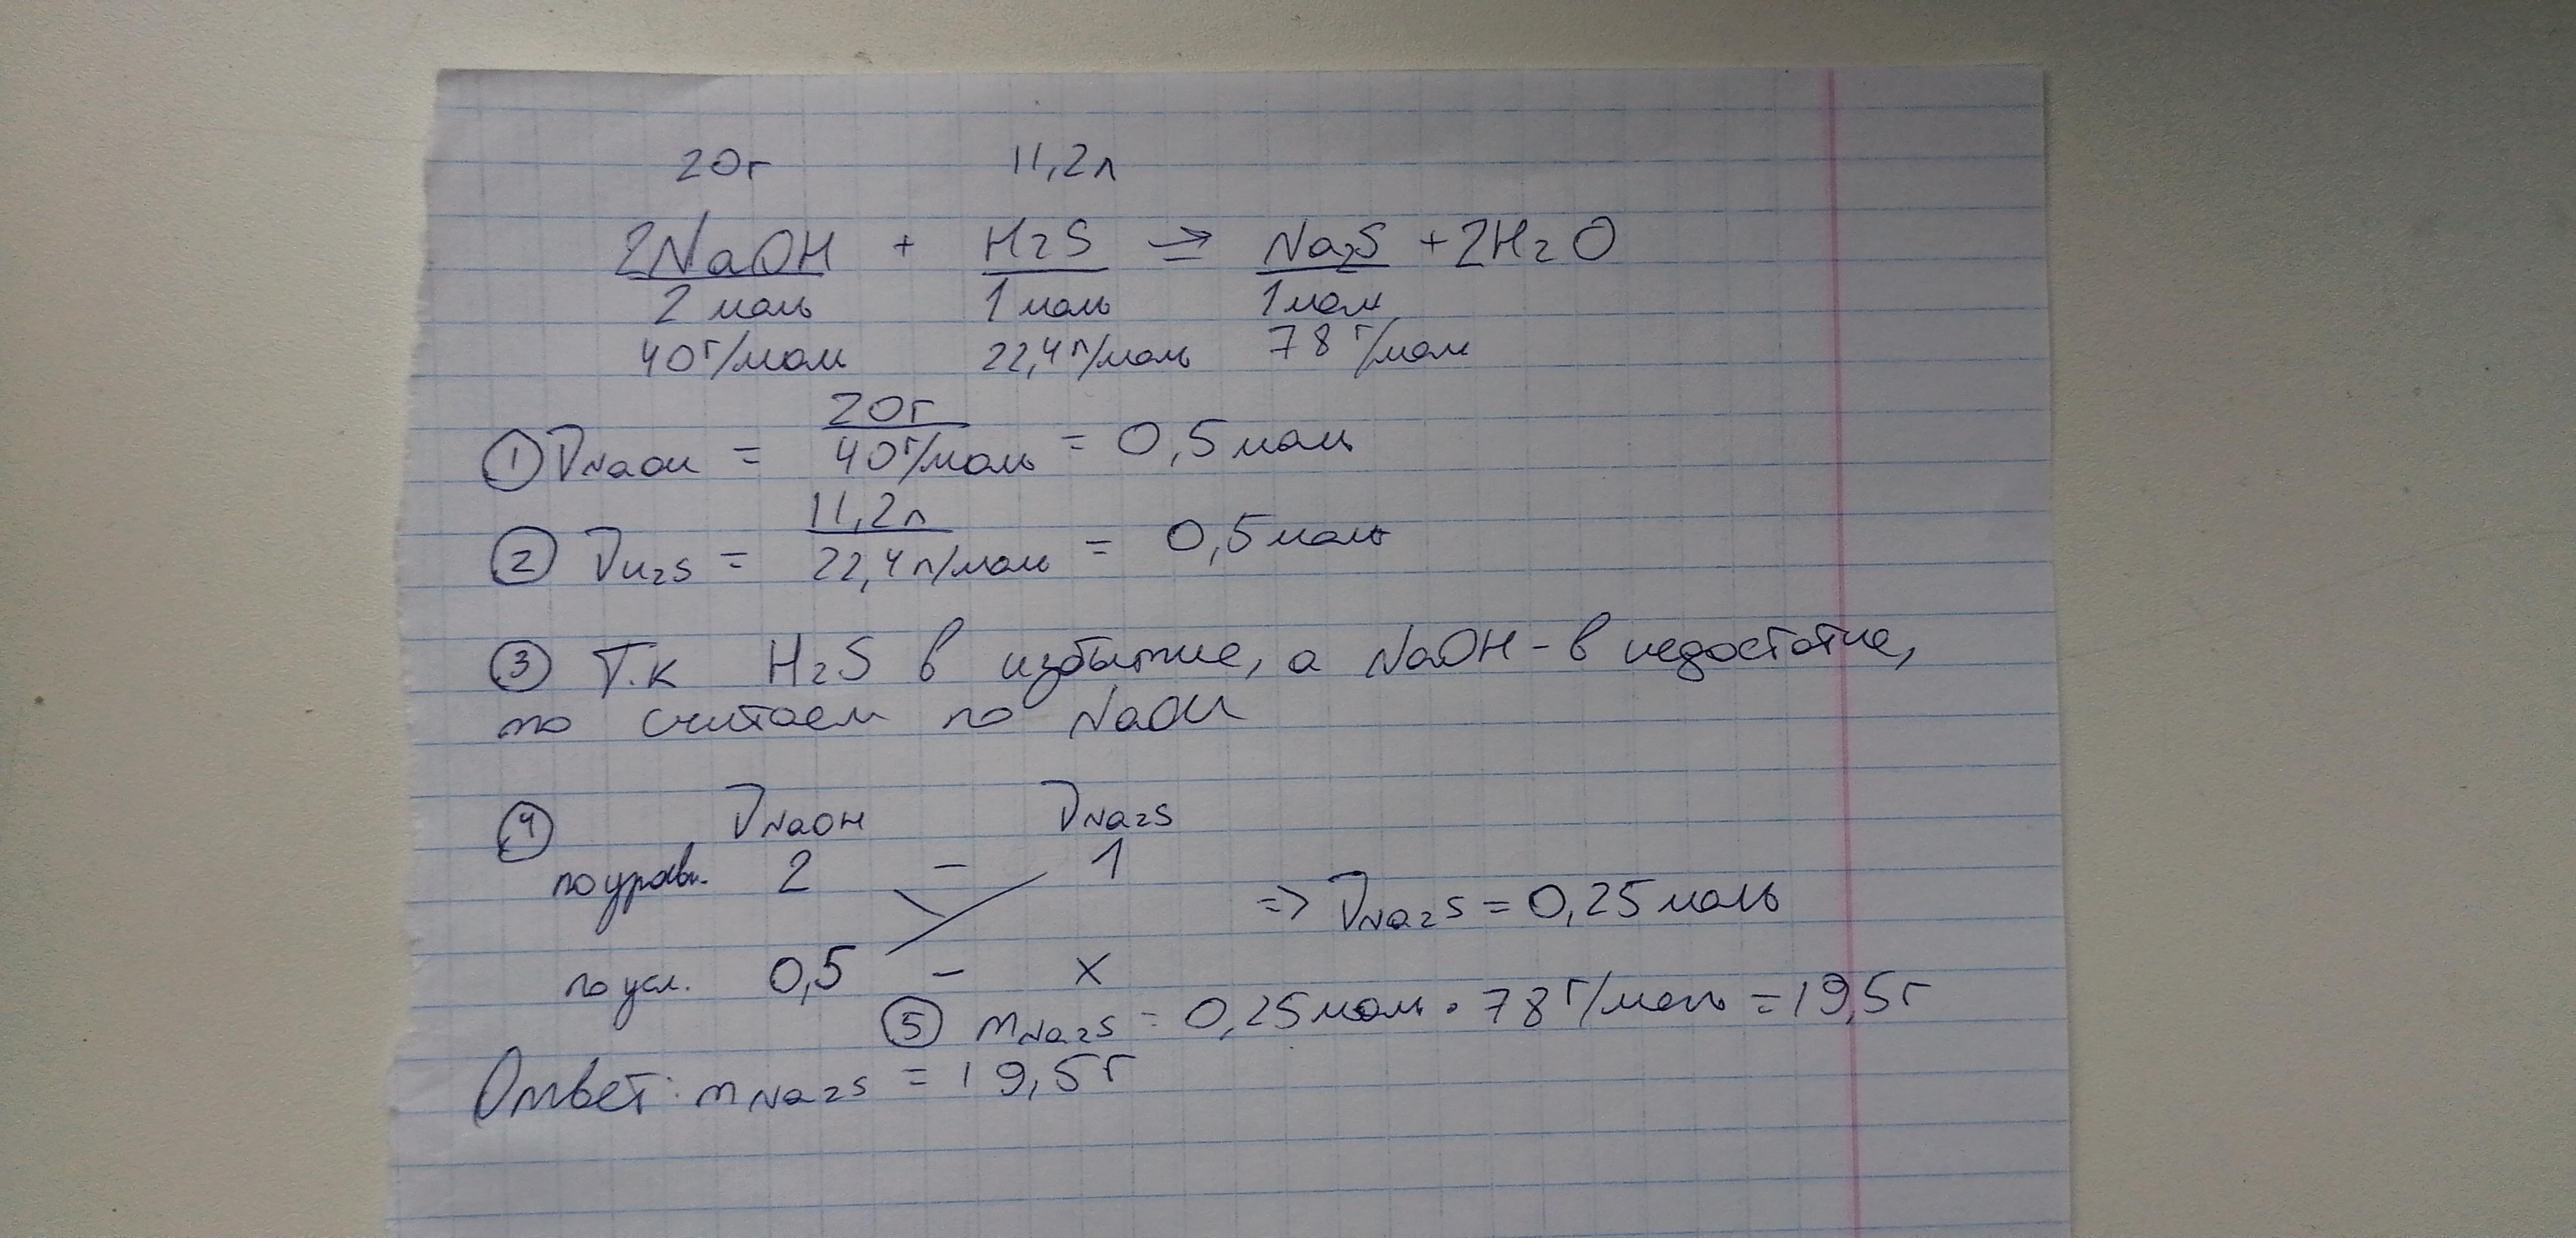 20г 11,2л
2NaOH + H2S → Na2S + 2H2O
2 моль 1 моль 1 моль
40 г/моль 22,4 л/моль 78 г/моль
① νNaOH = 20г / 40 г/моль = 0,5 моль
② νH2S = 11,2л / 22,4 л/моль = 0,5 моль
③ Т.к H2S в избытке, а NaOH - в недостатке,
то считаем по NaOH
④ νNaOH νNa2S
по уравн. 2 – 1
=> νNa2S = 0,25 моль
по усл. 0,5 – x
⑤ mNa2S = 0,25 моль · 78 г/моль = 19,5 г
Ответ: mNa2S = 19,5 г